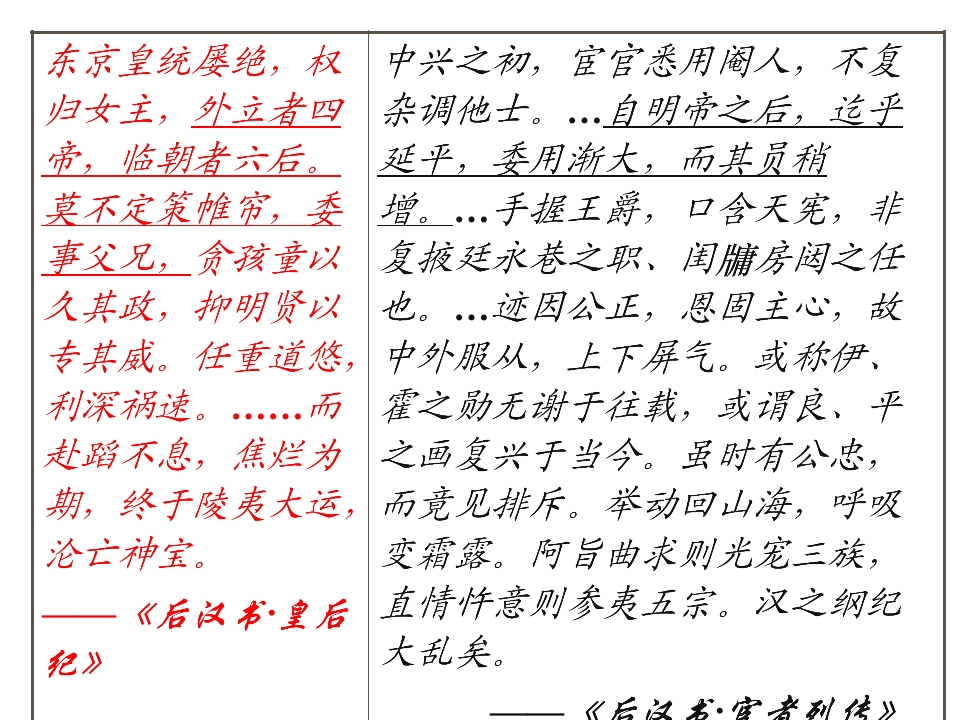 东京皇统屡绝，权
归女主，外立者四
帝，临朝者六后。
莫不定策帷帘，委
事父兄，贪孩童以
久其政，抑明贤以
专其威。任重道悠，
利深祸速。……而
赴蹈不息，焦烂为
期，终于陵夷大运，
沦亡神宝。
——《后汉书·皇后
纪》
中兴之初，宦官悉用阉人，不复
杂调他士。…自明帝之后，迄乎
延平，委用渐大，而其员稍
增。…手握王爵，口含天宪，非
复掖廷永巷之职、闺牗房闼之任
也。…迹因公正，恩固主心，故
中外服从，上下屏气。或称伊、
霍之勋无谢于往载，或谓良、平
之画复兴于当今。虽时有公忠，
而竟见排斥。举动回山海，呼吸
变霜露。阿旨曲求则光宠三族，
直情忤意则参夷五宗。汉之纲纪
大乱矣。
——《后汉书·宦者列传》